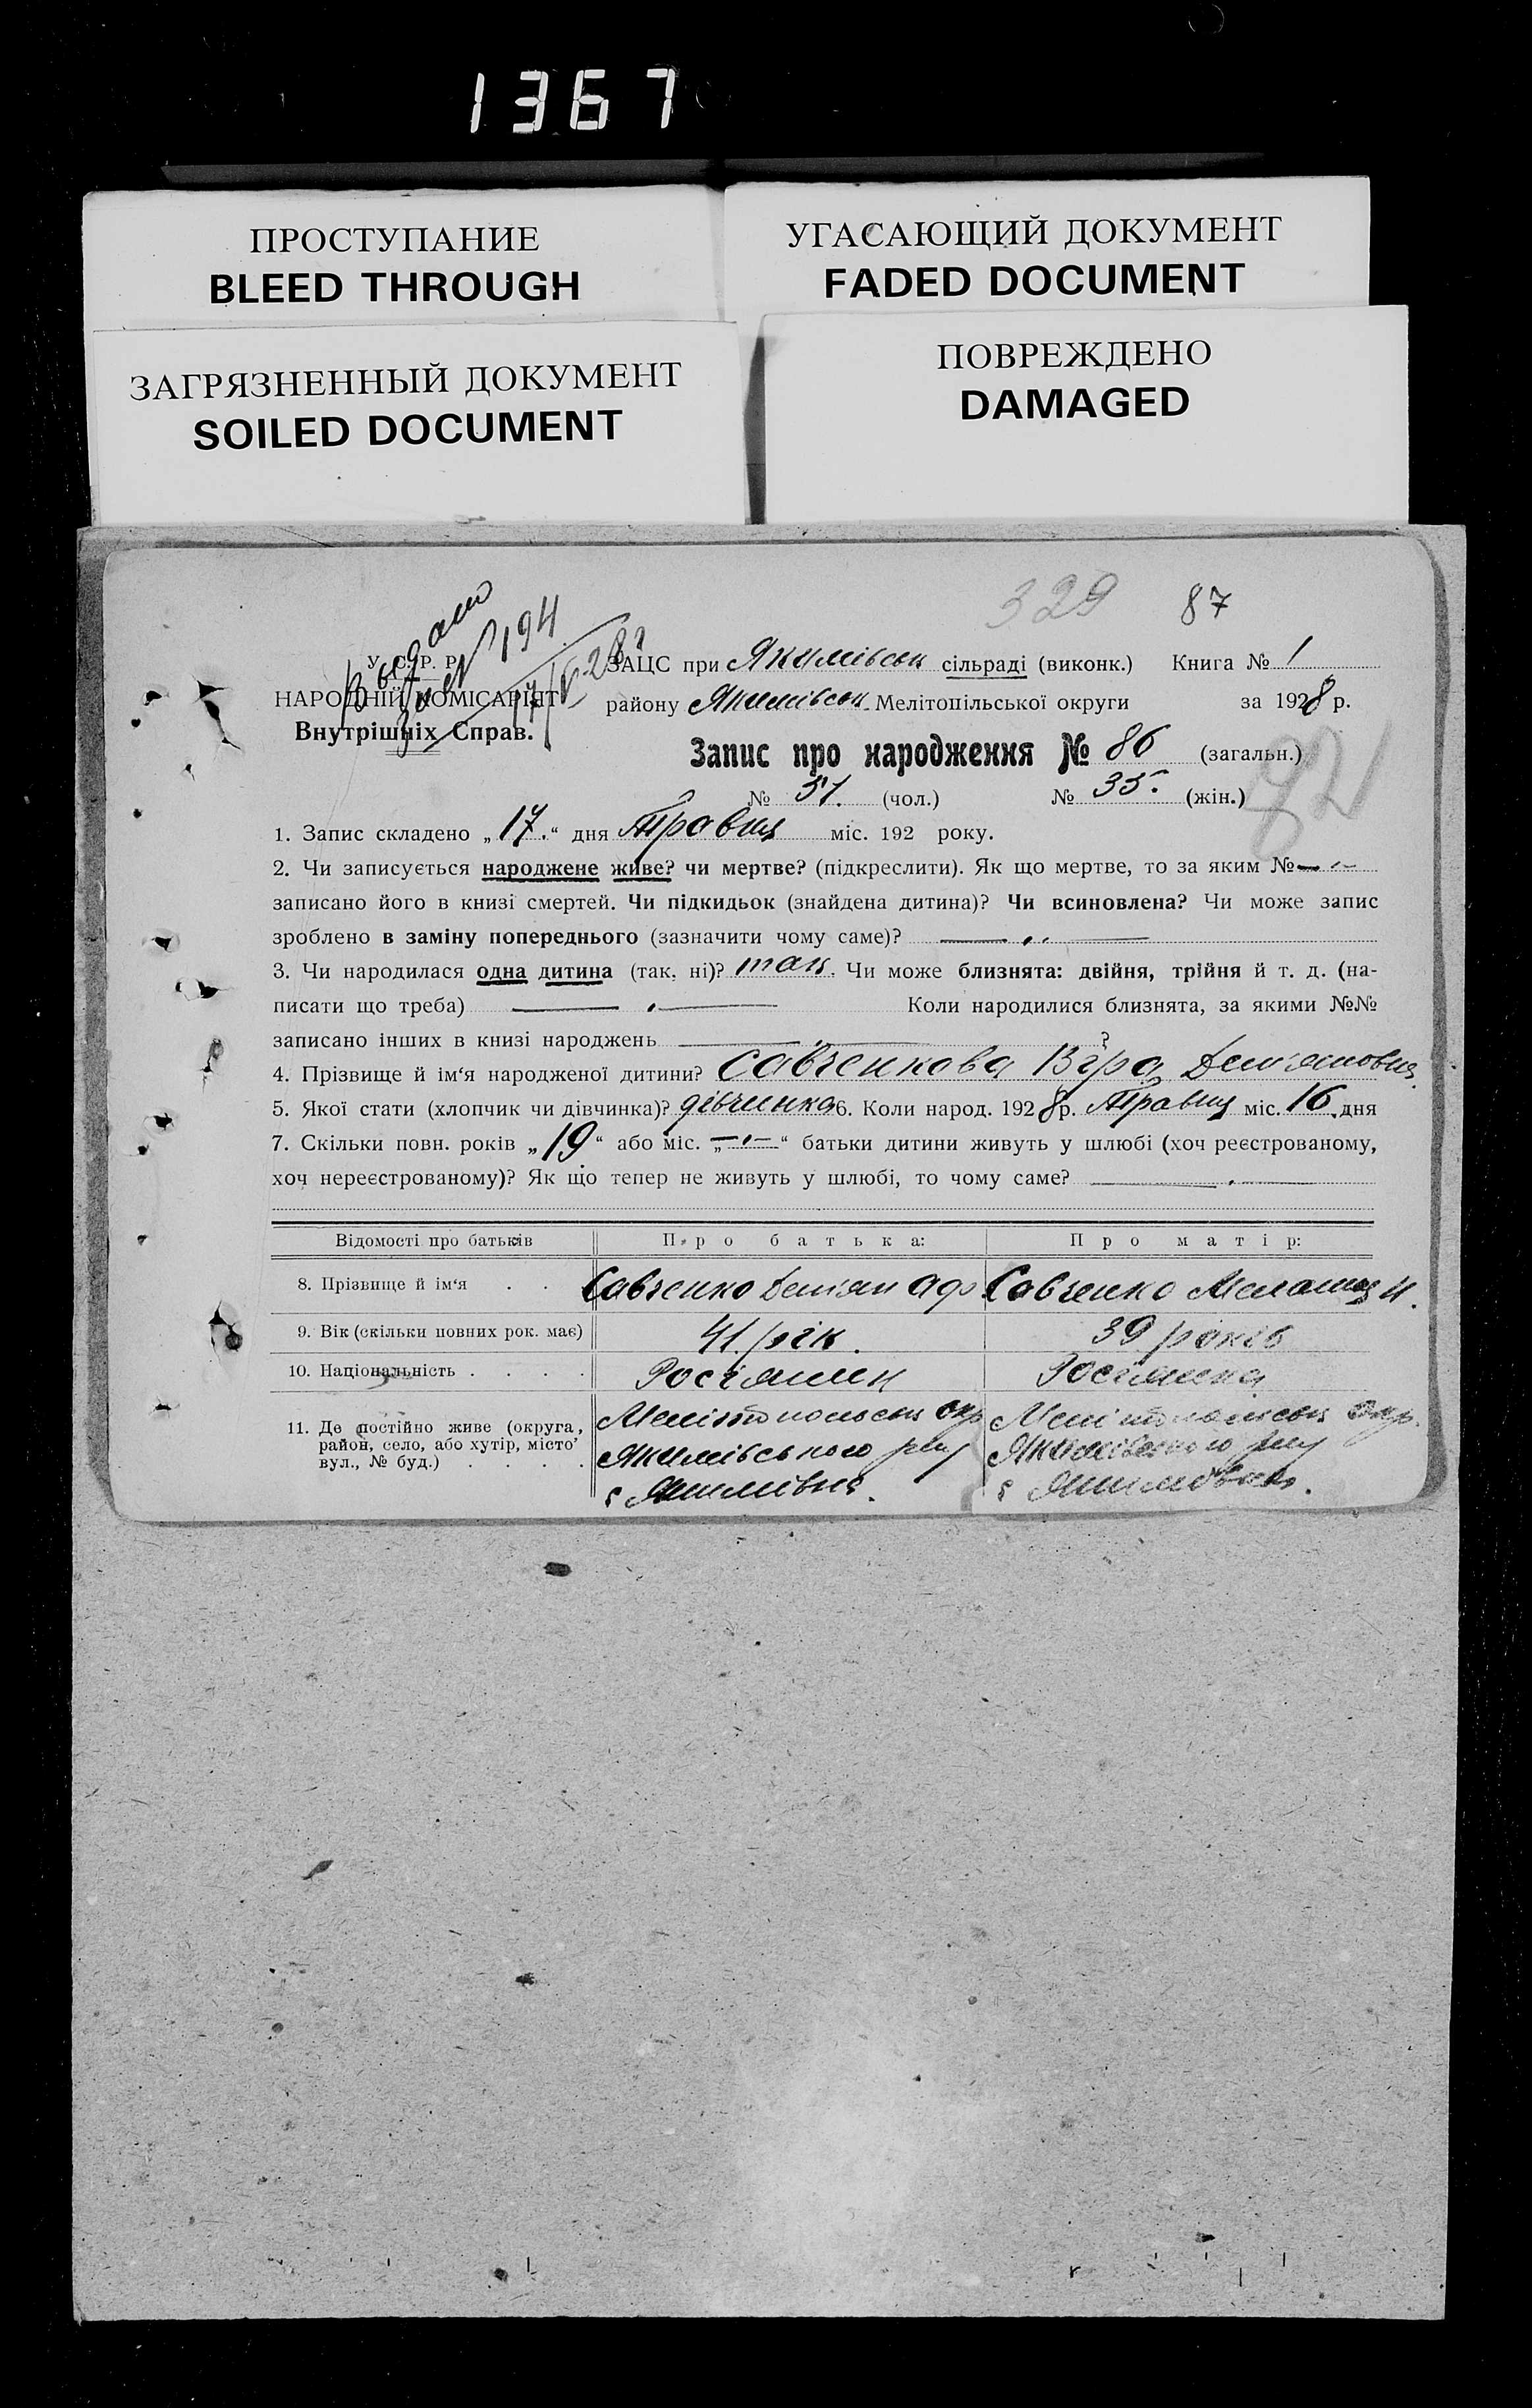 1367
ПРОСТУПАНИЕ
BLEED THROUGH
УГАСАЮЩИЙ ДОКУМЕНТ
FADED DOCUMENT
ЗАГРЯЗНЕННЫЙ ДОКУМЕНТ
SOILED DOCUMENT
ПОВРЕЖДЕНО
DAMAGED
329 87
№ 194
У. С. Р. Р.
НАРОДНІЙ КОМІСАРІЯТ
Внутрішніх Справ.
ЗАЦС при Якимівськ сільраді (виконк.) Книга № 1
району Якимівськ. Мелітопільської округи за 1928 р.
Запис про народження № 86 (загальн.)
№ 51. (чол.) № 35. (жін.)
82
1. Запис складено „17.“ дня Травня міс. 192 року.
2. Чи записується народжене живе? чи мертве? (підкреслити). Як що мертве, то за яким №
записано його в книзі смертей. Чи підкидьок (знайдена дитина)? Чи всиновлена? Чи може запис
зроблено в заміну попереднього (зазначити чому саме)?
3. Чи народилася одна дитина (так, ні)? так. Чи може близнята: двійня, трійня й т. д. (на-
писати що треба) Коли народилися близнята, за якими №№
записано інших в книзі народжень ?
4. Прізвище й ім‘я народженої дитини? Савченкова Віра Дем'яновна
5. Якої стати (хлопчик чи дівчинка)? дівчинка 6. Коли народ. 1928 р. Травня міс. 16. дня
7. Скільки повн. років „19“ або міс. „—“ батьки дитини живуть у шлюбі (хоч реєстрованому,
хоч нереєстрованому)? Як що тепер не живуть у шлюбі, то чому саме?
Відомості про батьків Про батька: Про матір:
8. Прізвище й ім‘я . . Савченко Дем'ян Аф. Савченко Меланія И.
9. Вік (скільки повних рок. має) 41 рік. 39 років
10. Національність . . . . Росіянин Росіянка
11. Де постійно живе (округа, район, село, або хутір, місто, вул., № буд.) . . . .
Мелітопольськ окр. Мелітопольськ окр.
Якимівського р-ну Якимівського р-ну
с Якимівка. с Якимовка.